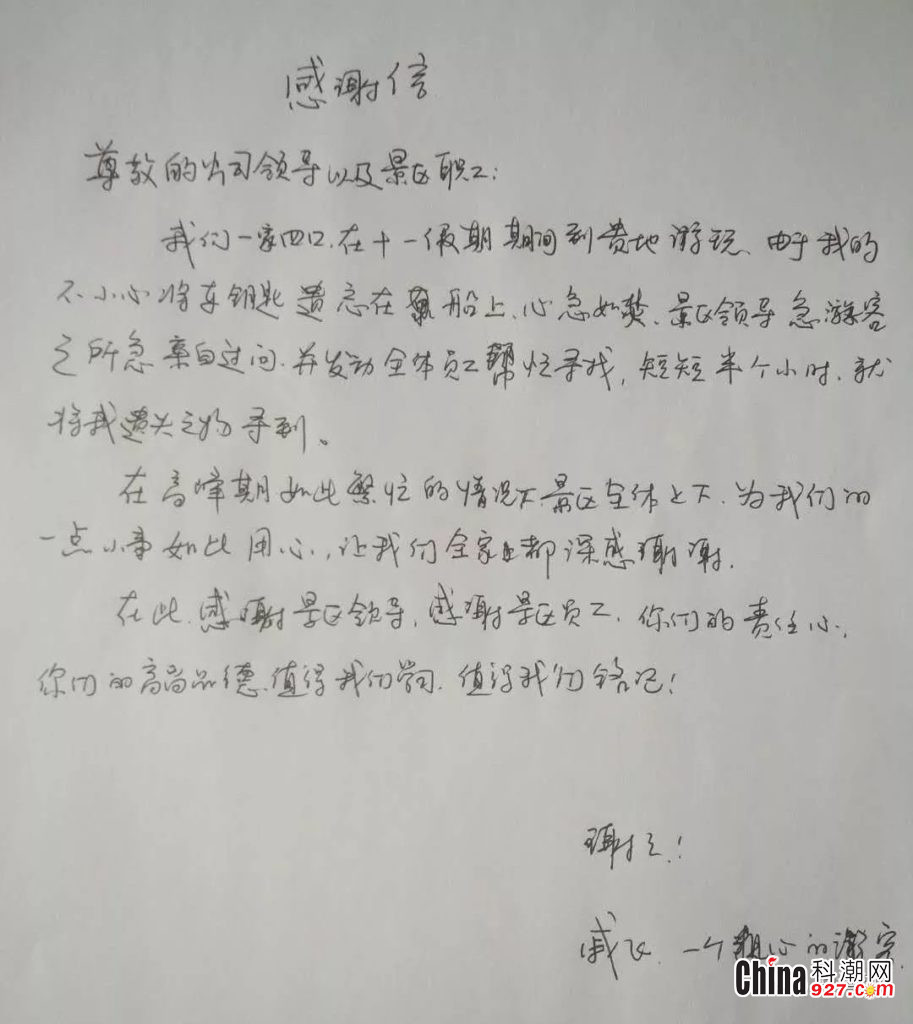 感谢信
尊敬的公司领导以及景区职工:
我们一家四口,在十一假期期间到贵地游玩,由于我的
不小心将车钥匙遗忘在船上,心急如焚,景区领导急游客
之所急亲自过问,并发动全体员工帮忙寻找,短短半个小时,就
将我遗失之物寻到。
在高峰期如此繁忙的情况下,景区全体上下,为我们的
一点小事如此用心,让我们全家都深感谢谢。
在此,感谢景区领导,感谢景区员工,你们的责任心,
你们的高尚品德,值得我们学习,值得我们铭记!
谢谢!
戚飞 一个粗心的游客
China科潮网
927.com